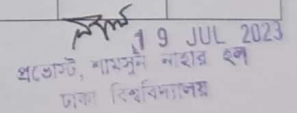 19 JUL 2023
প্রভোস্ট, শামসুন নাহার হল
ঢাকা বিশ্ববিদ্যালয়